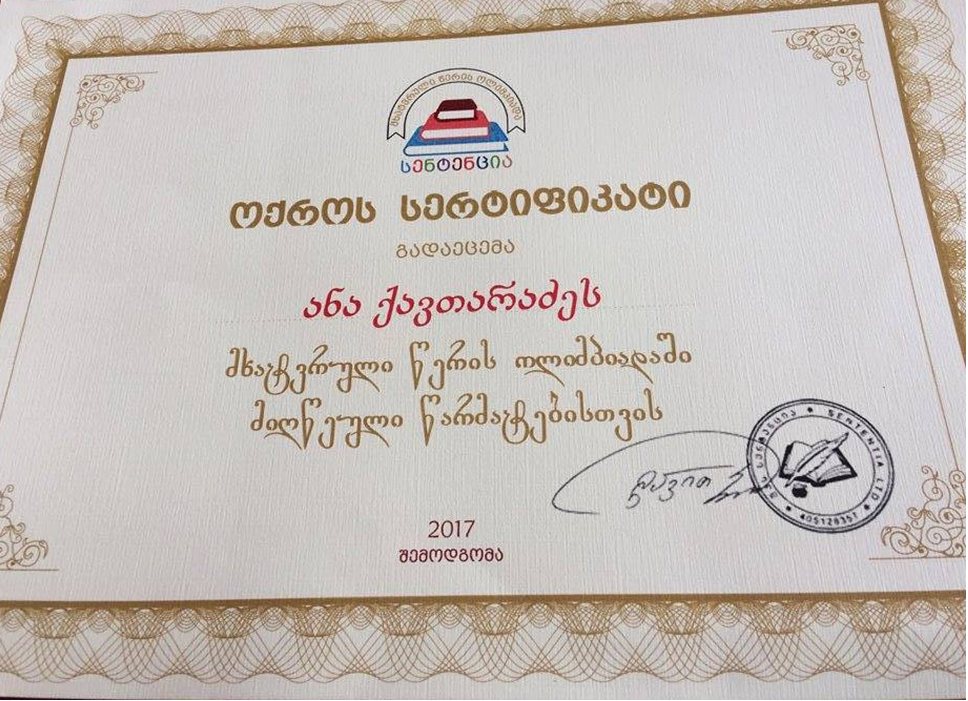 მხატვრული წერის ოლიმპიადა
სენტენცია
ოქროს სერტიფიკატი
გადაეცემა
ანა ქავთარაძეს
მხატვრული წერის ოლიმპიადაში
მიღწეული წარმატებისთვის
დავით
შპს სენტენცია * SENTENTIA LTD * 405128357
2017
შემოდგომა